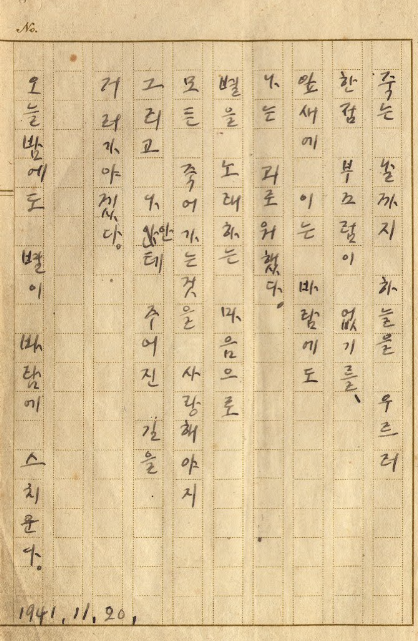 No.
죽는 날까지 하늘을 우르러
한점 부끄럼이 없기를、
앞새에 이는 바람에도
나는 괴로워했다。
별을 노래하는 마음으로
모든 죽어가는것을 사랑해야지
그리고 나안테 주어진 길을
거러가야겠다。
오늘밤에도 별이 바람에 스치운다。
1941, 11, 20,